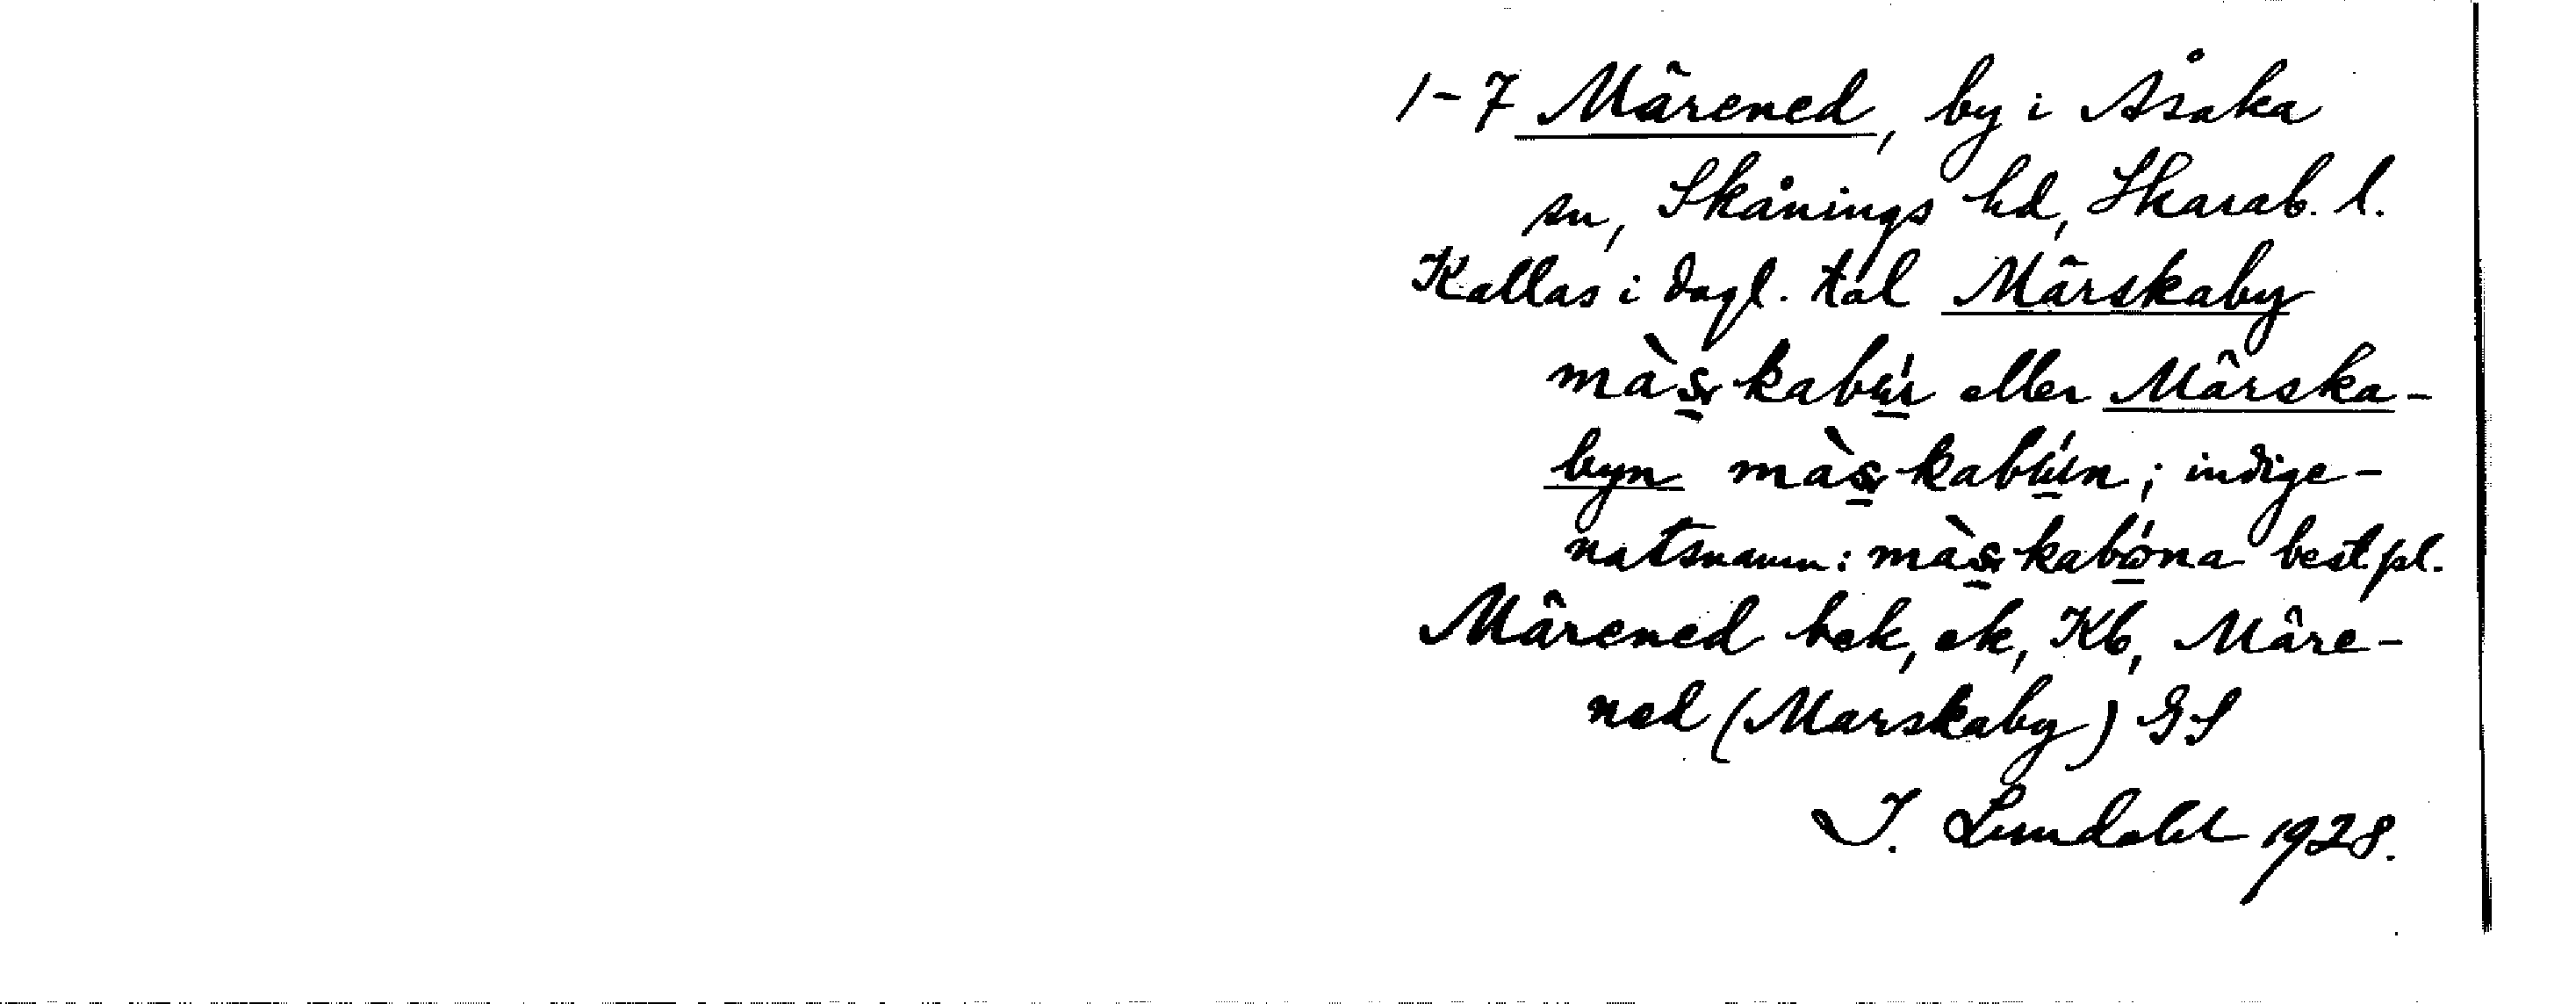 1-7 Märened, by i Åsaka
sn, Skånings hd, Skarab. l.
Kallas i dagl. tal Märskaby
eller Märska-
byn ; indige-
natsnamn: best. pl.
Märened bek, ek, Kb, Märe-
ned (Marskaby) GS
I. Lundahl 1928.